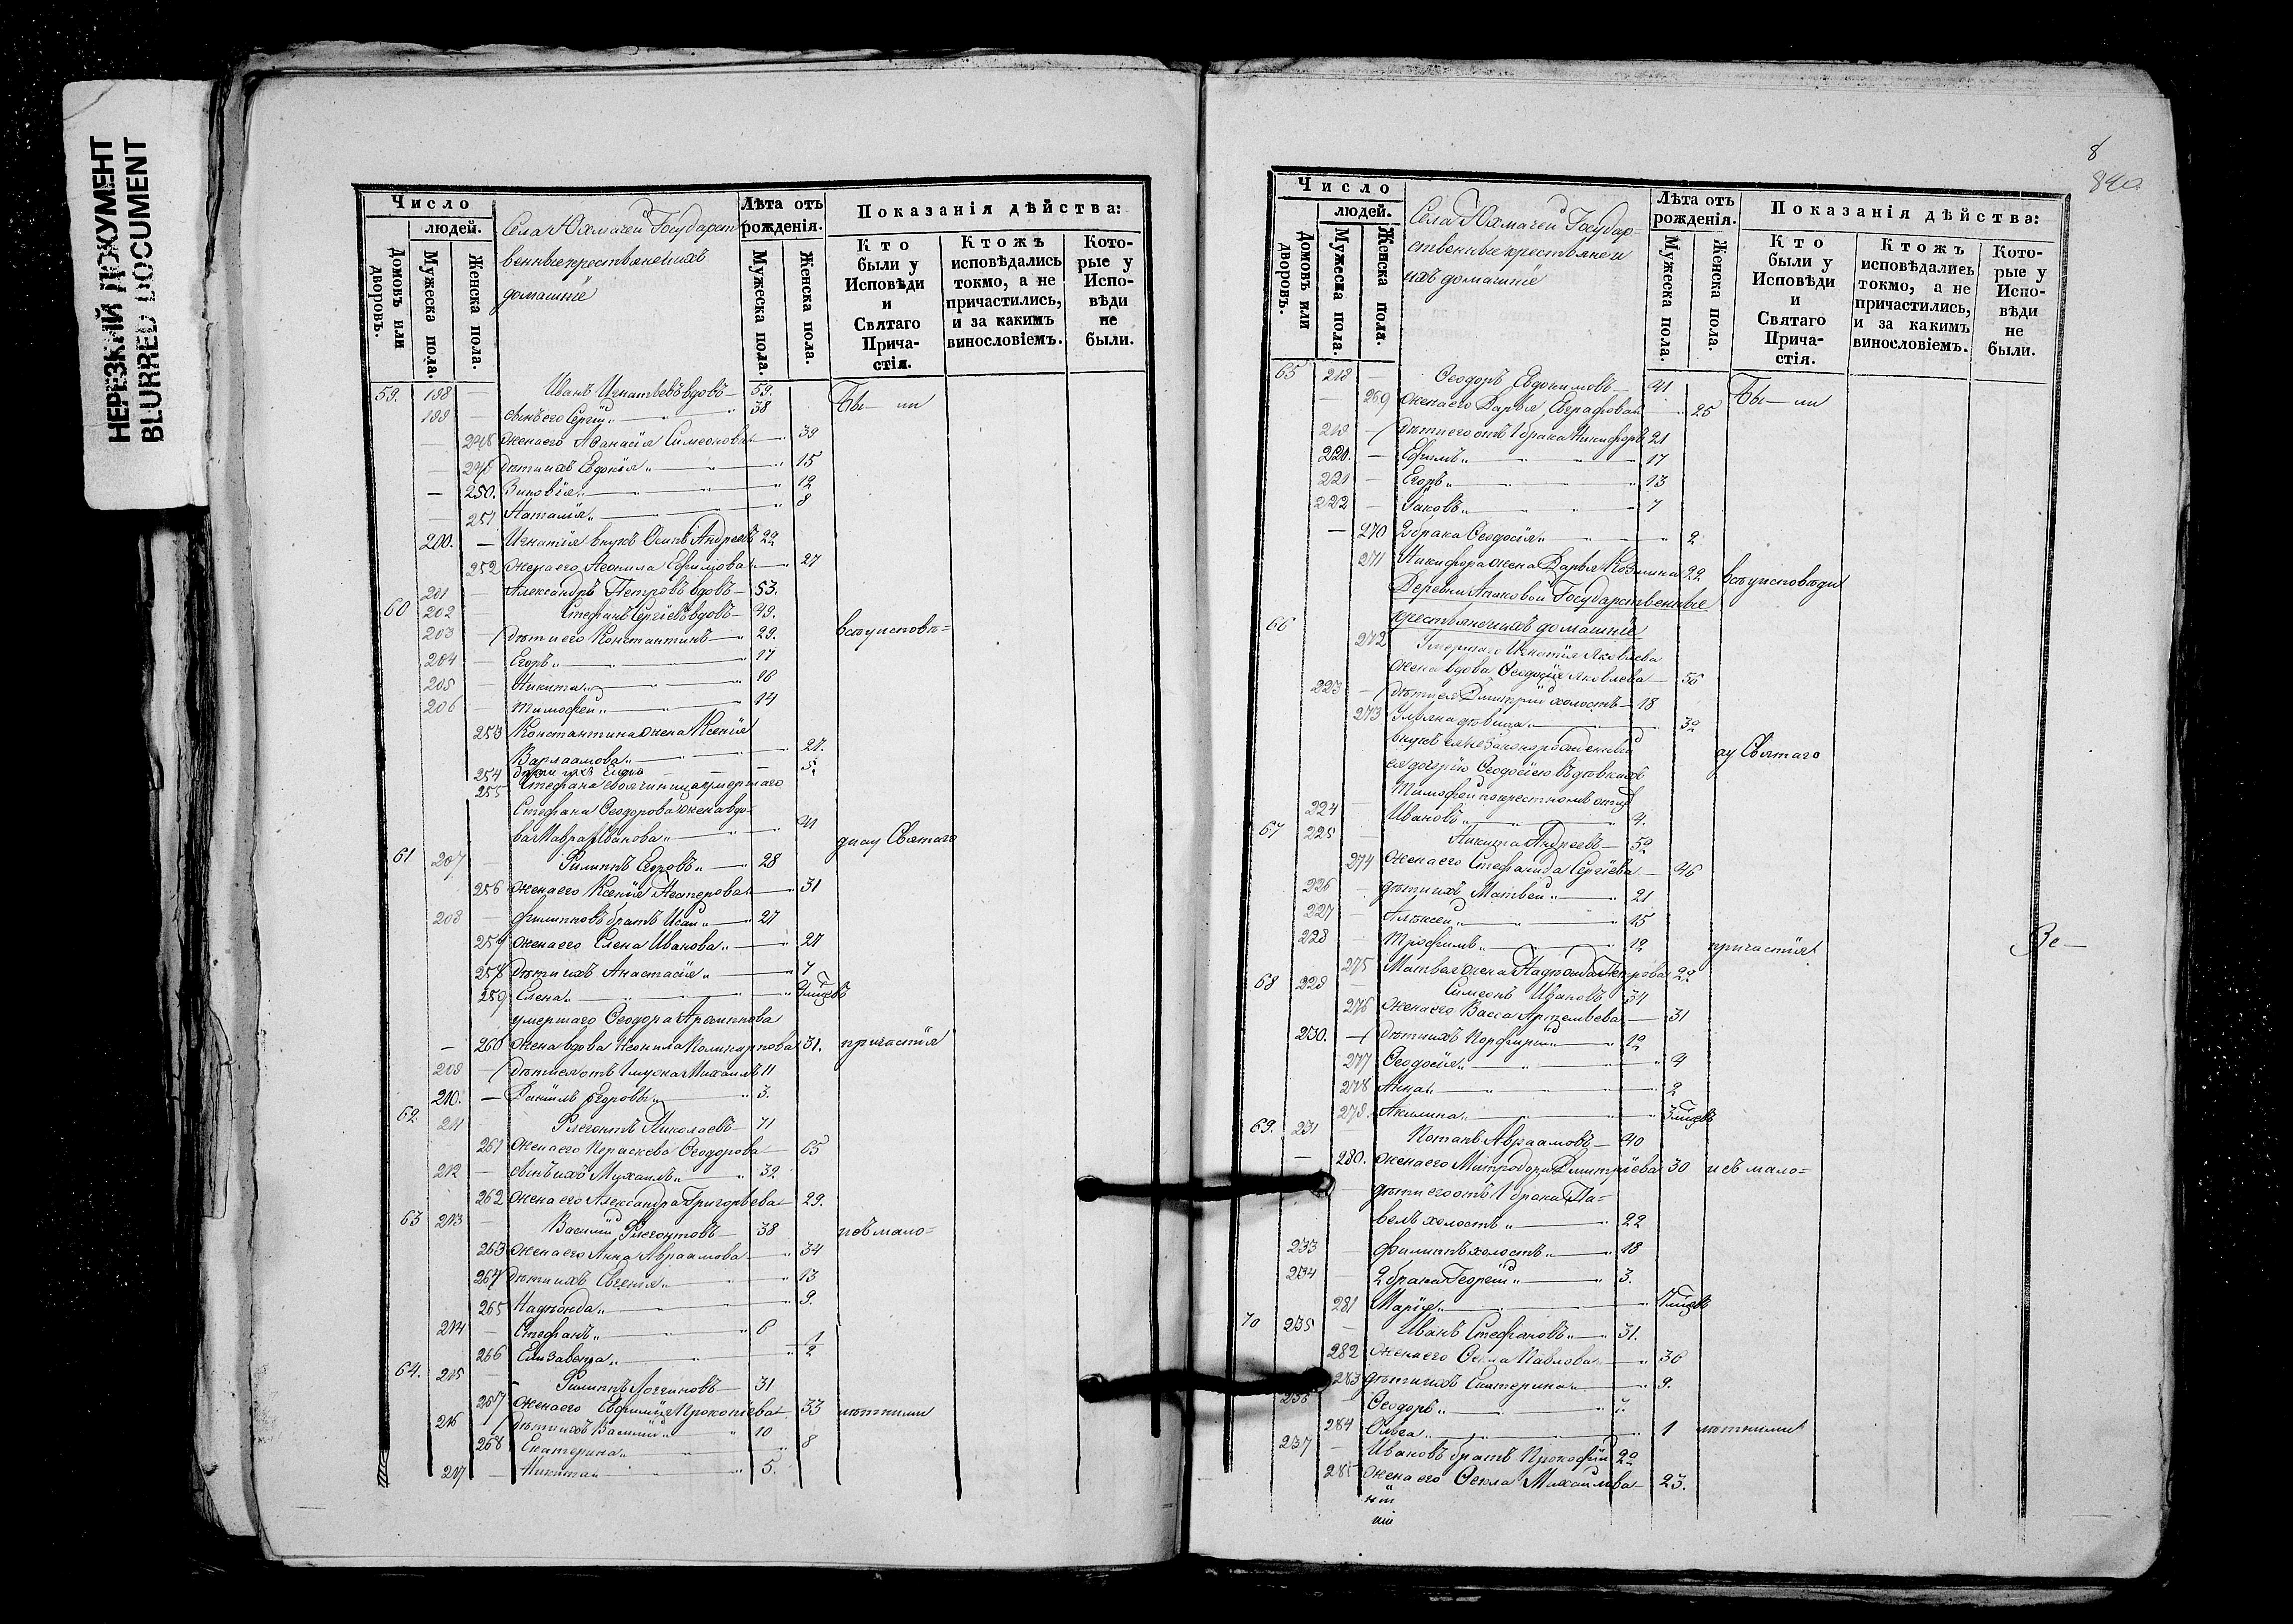 НЕРЕЗКИЙ ДОКУМЕНТ
BLURRED DOCUMENT
Число
людей.
Домовъ или дворовъ.
Мужеска пола.
Женска пола.
Села Юхмачей Государст
венные крестьяне и ихъ
домашніе
Лѣта отъ рожденія.
Мужеска пола.
Женска пола.
Показанія дѣйства:
Кто были у Исповѣди и Святаго Прича- стія.
Ктожъ исповѣдались токмо, а не причастились, и за какимъ винословіемъ.
Кото- рые у Испо- вѣди не были.
59. 198 — Иванъ Игнатьевъ вдовъ — 59. Бы — ли
199 — сынъ его Сергій — 38
248 жена его Аѳанасія Симеонова — 39
249 дѣти ихъ Евдокія — 15
250. Зиновія — 12
251 Наталія — 8
200. — Игнатія внукъ Осипъ Андреевъ 22
252 жена его Леонила Ефимова — 27
201 — Александръ Петровъ вдовъ — 53.
60 202 — Стефанъ Сергіевъ вдовъ — 49.
203 — дѣти его Константинъ — 29. всѣ у исповѣ=
204 — Егоръ — 17
205 — Никита — 16
206 — Тимофей — 14
253 Константина жена Ксенія
Варлаамова — 27.
254 дочь ихъ Елена — 5.
255 Стефана своячиница умершаго
Стефана Ѳеодорова жена вдо-
ва Мавра Иванова — 41 ди и у Святаго
61 207 — Филиппъ Егоровъ — 28
256 жена его Ксенія Нестерова — 31
208 — Филипповъ братъ Исай — 27
257 жена его Елена Иванова — 27
258 дѣти ихъ Анастасія — 7
259 Елена
умершаго Ѳеодора Архиппова
— 260 жена вдова Неонила Поликарпова 31. причастія
209 — дѣти ея отъ 1 мужа Михаилъ 11
210. — Даніилъ Ѳедоровъ — 3.
62 211 — Флегонтъ Николаевъ — 71
261 жена его Параскева Ѳеодорова — 65
212 — сынъ ихъ Михаилъ — 32
262 жена его Александра Григорьева — 29.
63 213 — Василій Флегонтовъ — 38 и съ мало=
263 жена его Анна Авраамова — 34
264 дѣти ихъ Евгенія — 13
265 Надежда — 9.
214 — Стефанъ — 6
266 Елизавета — 2
64. 215 — Филиппъ Логгиновъ — 31
267 жена его Евфимія Прокопіева 33 лѣтними
216 дѣти ихъ Василій — 10
268 Екатерина — 8
217 — Никита — 5.
8
840
Число
людей.
Домовъ или дворовъ.
Мужеска пола.
Женска пола.
Села Юхмачей Государ-
ственные крестьяне и
ихъ домашніе
Лѣта отъ рожденія.
Мужеска пола.
Женска пола.
Показанія дѣйства:
Кто были у Исповѣди и Святаго Прича- стія.
Ктожъ исповѣдались токмо, а не причастились, и за какимъ винословіемъ.
Кото- рые у Испо- вѣди не были.
65 218 — Ѳеодоръ Евдокимовъ — 41 Бы — ли
— 269 жена его Дарья Евграфова — 25
219 — дѣти его отъ 1 брака Никифоръ 21
220. — Ефимъ — 17
221 — Егоръ — 13
222 — Яковъ — 7
— 270 2 брака Ѳеодосія — 2
271 Никифора жена Дарья Козмина 22 всѣ у исповѣди
Деревни Апаковой Государственные
крестьяне и ихъ домашніе
66 272 Умершаго Игнатія Яковлева
жена вдова Ѳеодосія Яковлева — 56
223 — дѣти ея Димитрій холостъ — 18
273 Ульяна дѣвица — 32
внукъ ея незаконорожденный
ея дочерію Ѳеодосіею въ дѣвкахъ и у Святаго
Тимофей по крестномъ отцѣ
224 — Ивановъ — 4.
67 225 — Никита Андреевъ — 52
274 жена его Стефанида Сергіева — 46
226 — дѣти ихъ Матвей — 21
227 — Алексей — 15
228 — Трофимъ — 12 причастія
275 Матвея жена Надежда Петрова 22
68 229 — Симеонъ Ивановъ 34
276 жена его Васса Артемьева — 31
230. — дѣти ихъ Порфирій — 12
277 Ѳеодосія — 4
278 Анна — 2
279. Акилина
69. 231 — Потапъ Авраамовъ — 40
— 280. жена его Митродора Димитріева 30 и съ мало=
дѣти его отъ 1 брака Па-
велъ холостъ — 22
233 Филиппъ холостъ — 18
234 2 брака Георгій — 3.
281 Марія
70 235 — Иванъ Стефановъ — 31.
282 жена его Ѳекла Павлова — 36
283 дѣти ихъ Екатерина — 9.
236 — Ѳеодоръ
284 Ольга — 1 лѣтними
237 — Ивановъ братъ Прокофій 22
285 жена его Ѳекла Михайлова — 23.